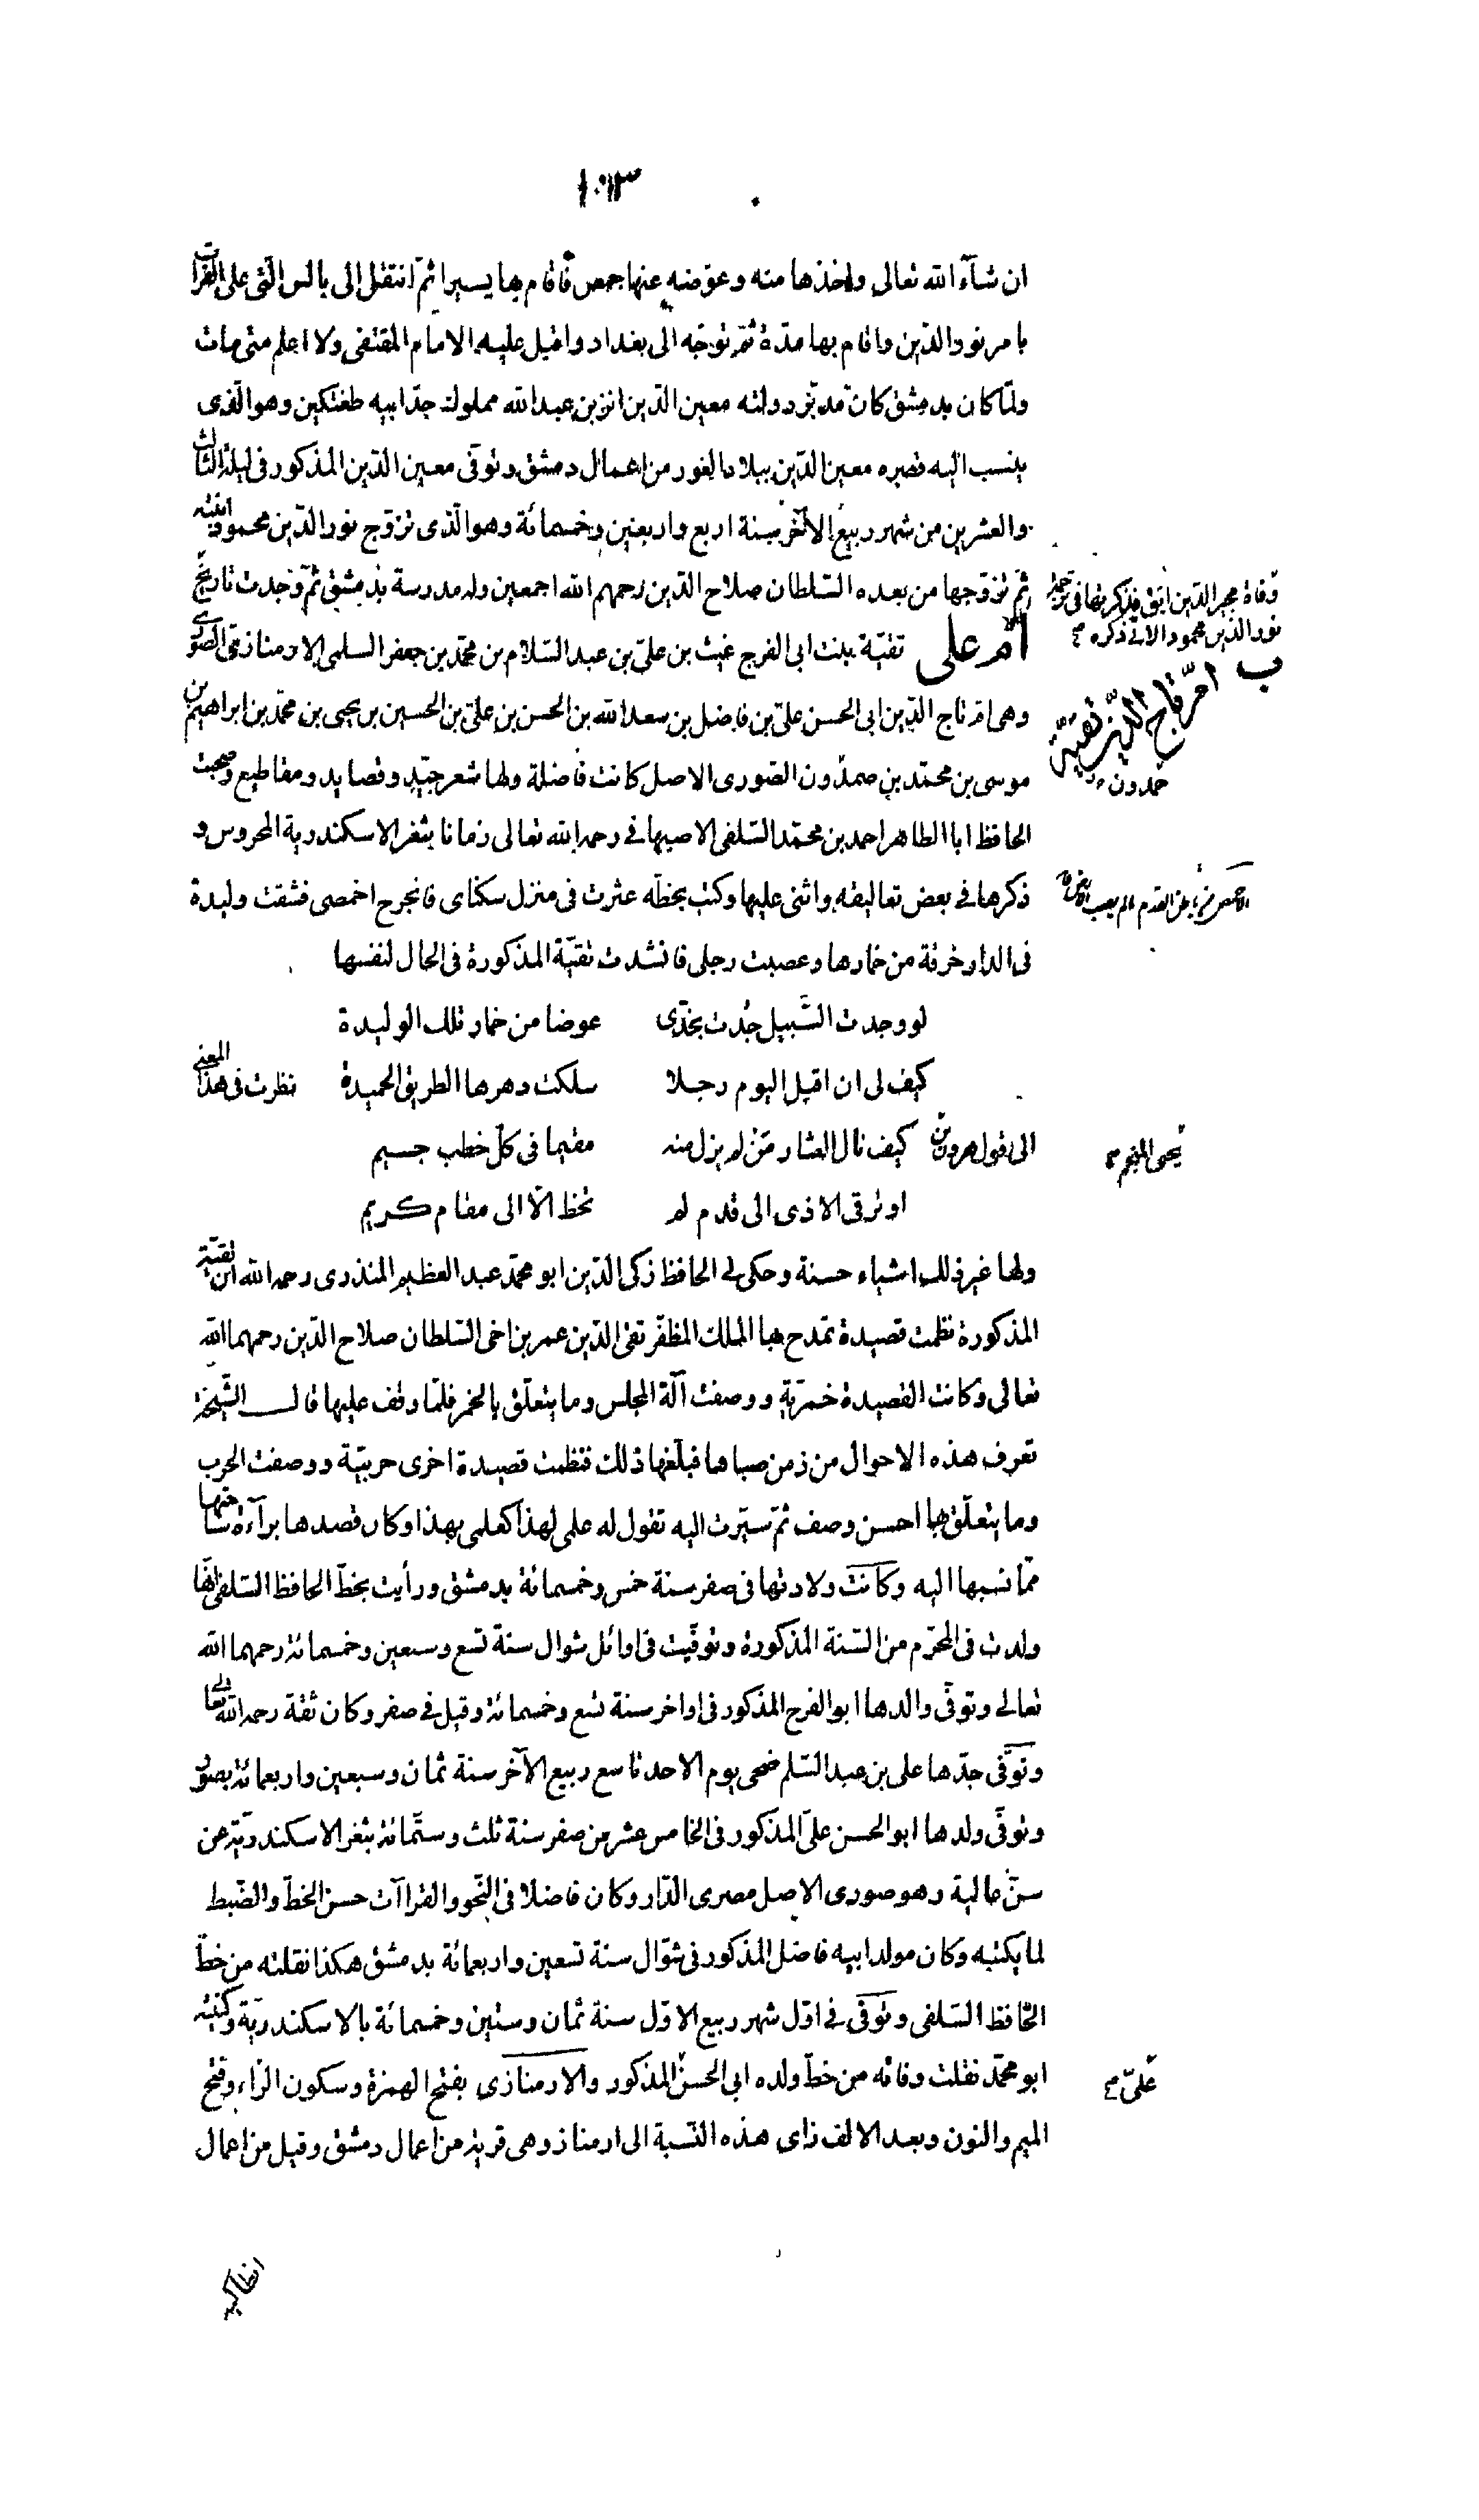 ١٠١٣
ان شآء الله تعالى واخذها منه وعوّضه عنها حمص فاقام بها يسيرا ثمّ انتقل الى بالس الّتى على الفرات
بامر نور الدّين واقام بها مدّة ثمّ توجّه الى بغداد واقبل عليه الامام المقتفى ولا اعلم متى مات
ولمّا كان بدمشق كان مدبّر دولته معين الدّين انز بن عبد الله مملوك جدّ ابيه طغتكين وهو الّذى
ينسب اليه قصره معين الدّين ببلاد الغور من اعمال دمشق وتوفّى معين الدّين المذكور فى ليلة الثالث
والعشرين من شهر ربيع الآخر سنة اربع واربعين وخمسمائة وهو الّذى تزوّج نور الدّين محمود ابنته
ثمّ تزوّجها من بعده السّلطان صلاح الدّين رحمهم الله اجمعين وله مدرسة بدمشق ثمّ وجدت تاريخ
وفاة مجير الدّين ابق فذكرتها فى ترجمة
نور الدّين محمود الآتى ذكره صح
امّ على تقيّة بنت ابى الفرج غيث بن علىّ بن عبد السّلام بن محمّد بن جعفر السلمى الارمنازى الصورى
ب امّ تاج الدّين تقيّة
وهى امّ تاج الدّين ابى الحسن علىّ بن فاضل بن سعد الله بن الحسن بن علىّ بن الحسين بن يحيى بن محمّد بن ابراهيم بن
موسى بن محمّد بن صمدون الصّورى الاصل كانت فاضلة ولها شعر جيّد وقصايد ومقاطيع وصحبت
حمدون
الحافظ ابا الطاهر احمد بن محمّد السّلفى الاصبهانى رحمه الله تعالى زمانا بثغر الاسكندرية المحروس و
ذكرها فى بعض تعاليقه واثنى عليها وكتب بخطّه عثرت فى منزل سكناى فانجرح اخمصى فشقت وليدة
فى الدار خرقة من خمارها وعصبت رجلى فانشدت تقيّة المذكورة فى الحال لنفسها
لو وجدت السّبيل جُدت بخدّى عوضا من خمار تلك الوليدة
كيف لى ان اقبل اليوم رجلا سلكت دهرها الطريق الحميدة نظرت فى هذا المعنى
الى قول هرون بن كيف نال العثار من لم يزل منه مقيما فى كلّ خطب جسيم
يحيى المنجم صح
او ترقى الاذى الى قدم لم تخط الّا الى مقام كريم
ولها غير ذلك اشياء حسنة وحكى لى الحافظ زكى الدّين ابو محمّد عبد العظيم المنذرى رحمه الله ان تقيّة
المذكورة نظمت قصيدة تمدح بها الملك المظفّر تقى الدّين عمر بن اخى السّلطان صلاح الدّين رحمهما الله
تعالى وكانت القصيدة خمريّة ووصفت آلة المجلس وما يتعلّق بالخمر فلمّا وقف عليها قال الشّيخة
تعرف هذه الاحوال من زمن صباها فبلّغها ذلك فنظمت قصيدة اخرى حربيّة ووصفت الحرب
وما يتعلّق بها احسن وصف ثمّ سيّرت اليه تقول له علمى لهذا كعلمى بهذا وكان قصدها برآءة ساحتها
ممّا نسبها اليه وكانت ولادتها فى صفر سنة خمس وخمسمائة بدمشق ورأيت بخطّ الحافظ السّلفى انّها
ولدت فى المحرّم من السّنة المذكورة وتوفّيت فى اوائل شوال سنة تسع وسبعين وخمسمائة رحمهما الله
تعالى وتوفّى والدها ابو الفرج المذكور فى اواخر سنة تسع وخمسمائة وقيل فى صفر وكان ثقة رحمه الله تعالى
وتوفّى جدّها على بن عبد السّلم ضحى يوم الاحد تاسع ربيع الآخر سنة ثمان وسبعين واربعمائة بصور
وتوفّى ولدها ابو الحسن علىّ المذكور فى الخامس عشر من صفر سنة ثلث وستّمائة بثغر الاسكندريّة عن
سنّ عالية وهو صورى الاصل مصرى الدّار وكان فاضلا فى النّحو والقراآت حسن الخطّ والضّبط
لما يكتبه وكان مولد ابيه فاضل المذكور فى شوّال سنة تسعين واربعمائة بدمشق هكذا نقلته من خطّ
الحافظ السّلفى وتوفّى فى اوّل شهر ربيع الاوّل سنة ثمان وستين وخمسمائة بالاسكندريّة وكنيته
ابو محمّد نقلت وفاته من خطّ ولده ابى الحسن المذكور والارمنازى بفتح الهمزة وسكون الرّاء وفتح
علىّ صح
الميم والنون وبعد الالف زاى هذه النّسبة الى ارمناز وهى قرية من اعمال دمشق وقيل من اعمال
انطاكية